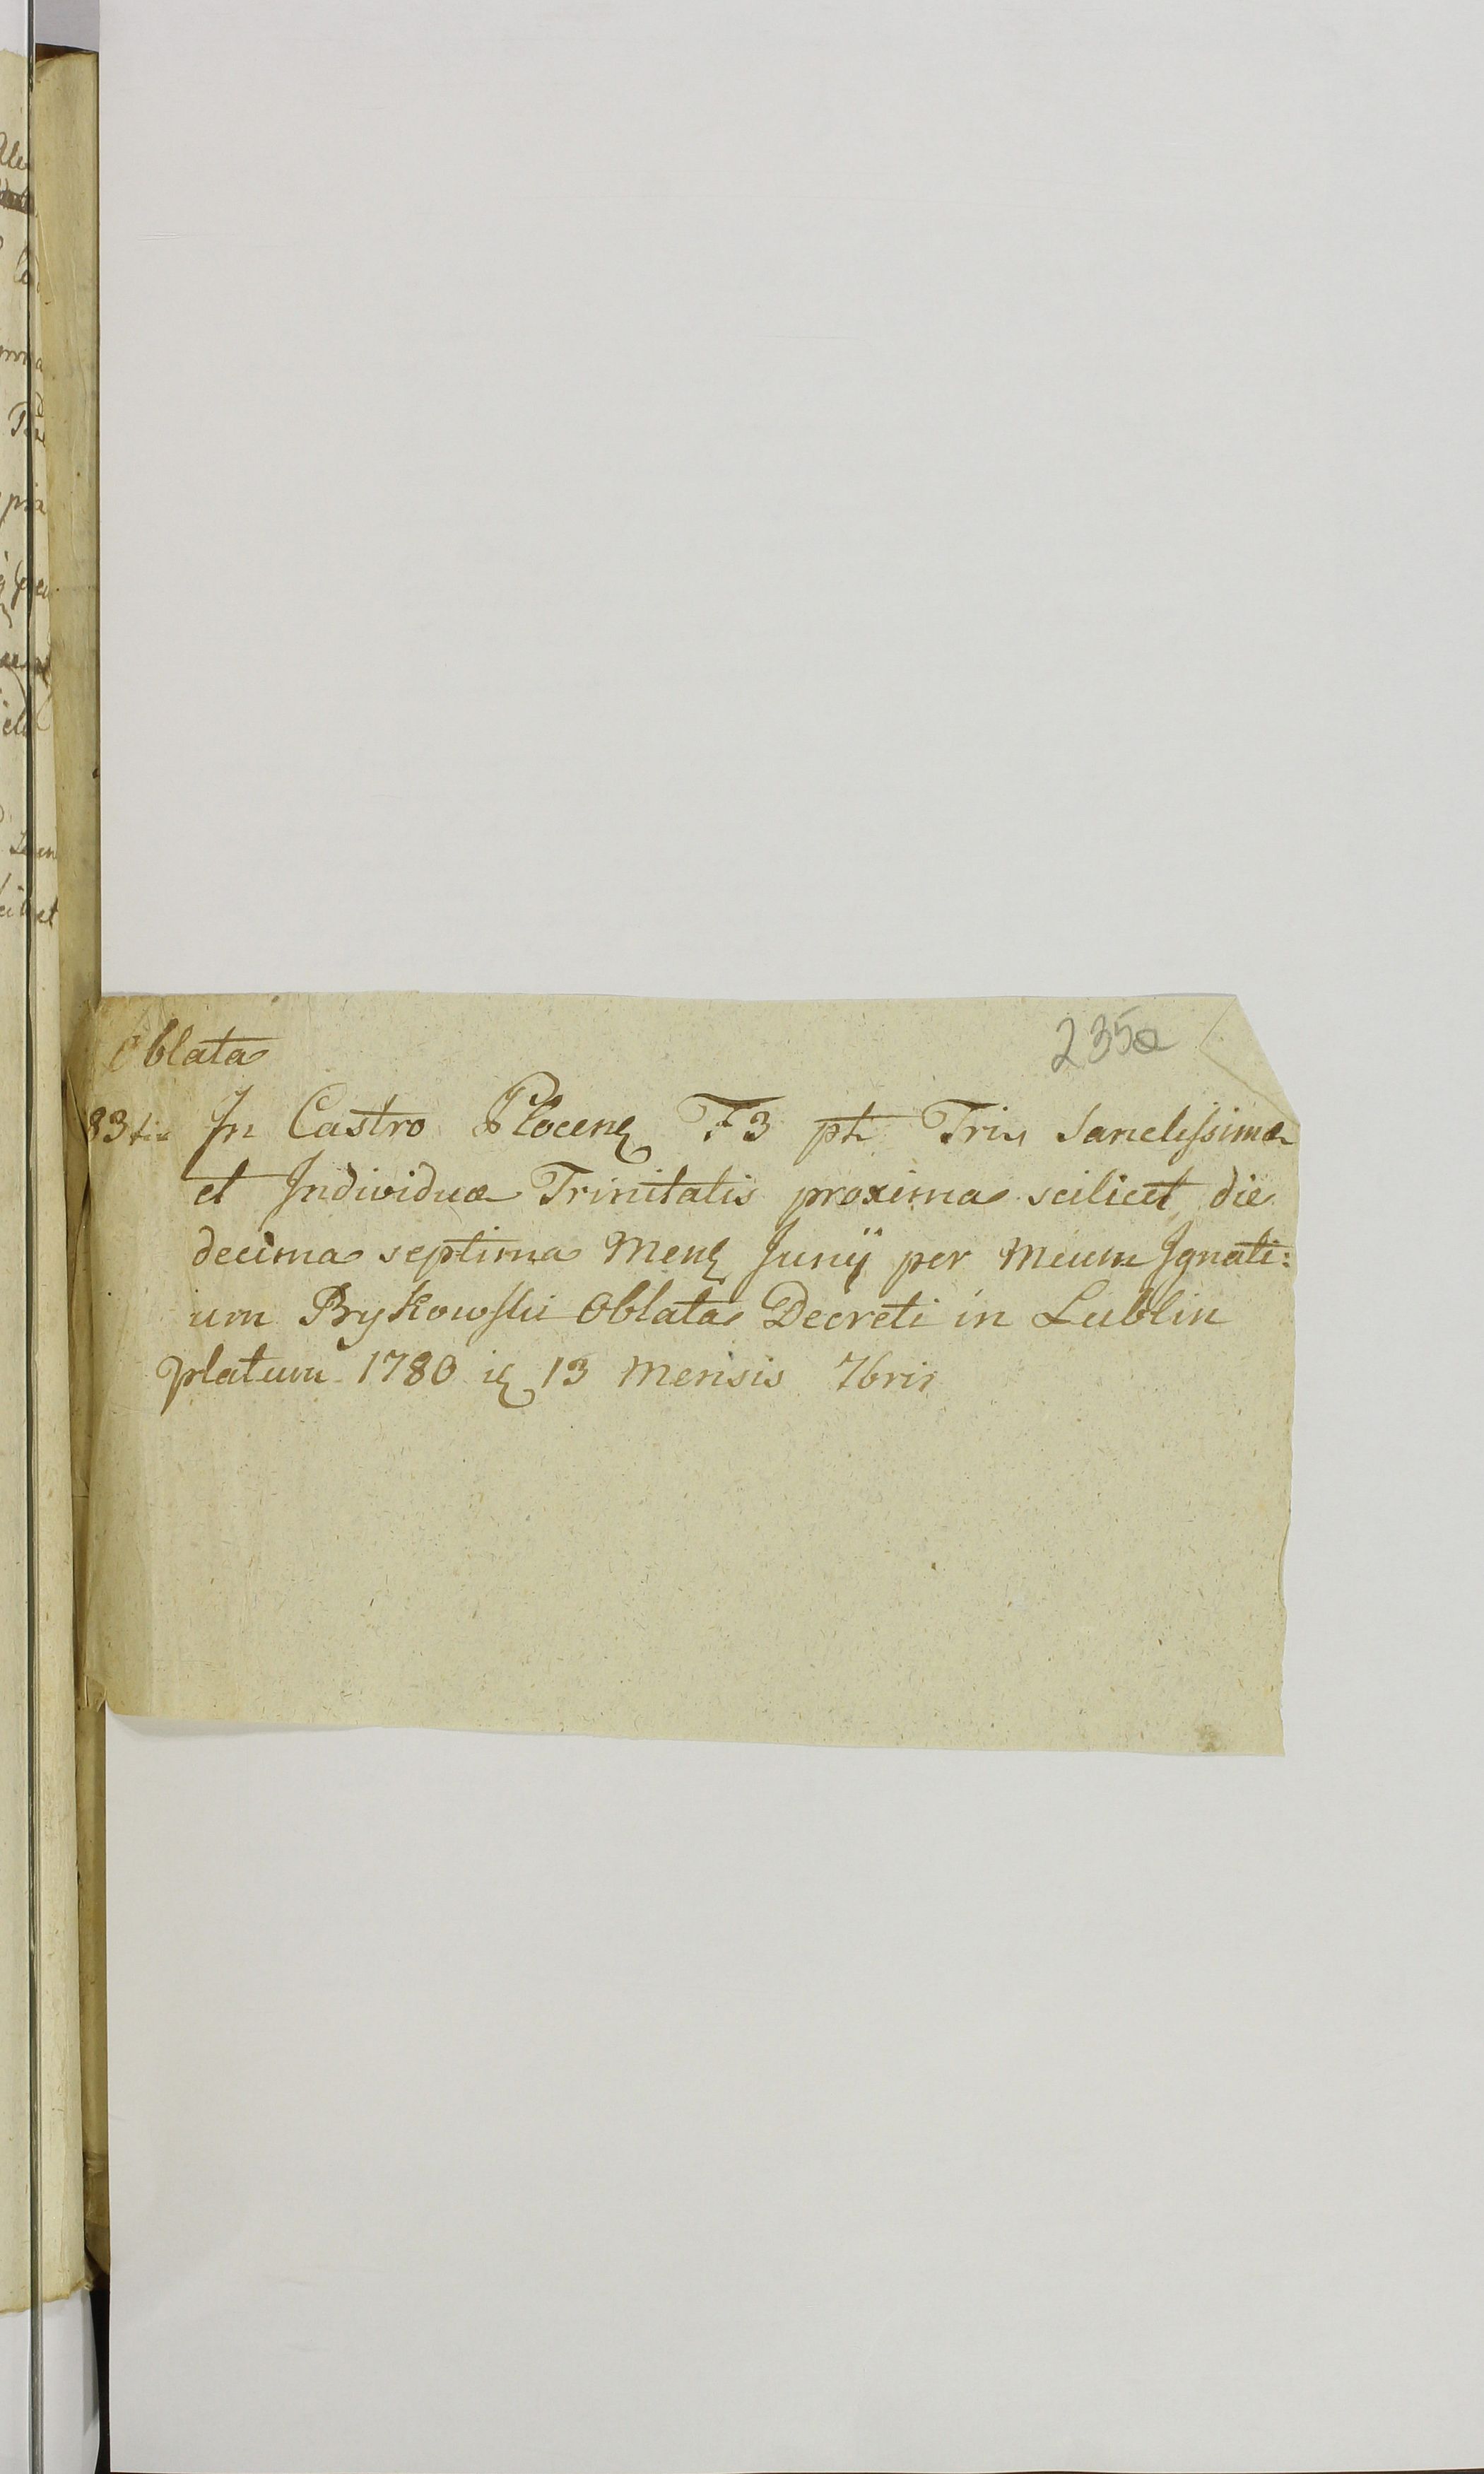 235a
Oblata
83tia In Castro Plocenꝫ F3 pt Tris Sanctissimæ
et Individuæ Trinitatis proxima scilicet die
decima septima Menꝫ Junij per Meum Ignati:
um Brykowski Oblata Decreti in Lublin
platum 1780 iꝫ 13 Mensis 7bris